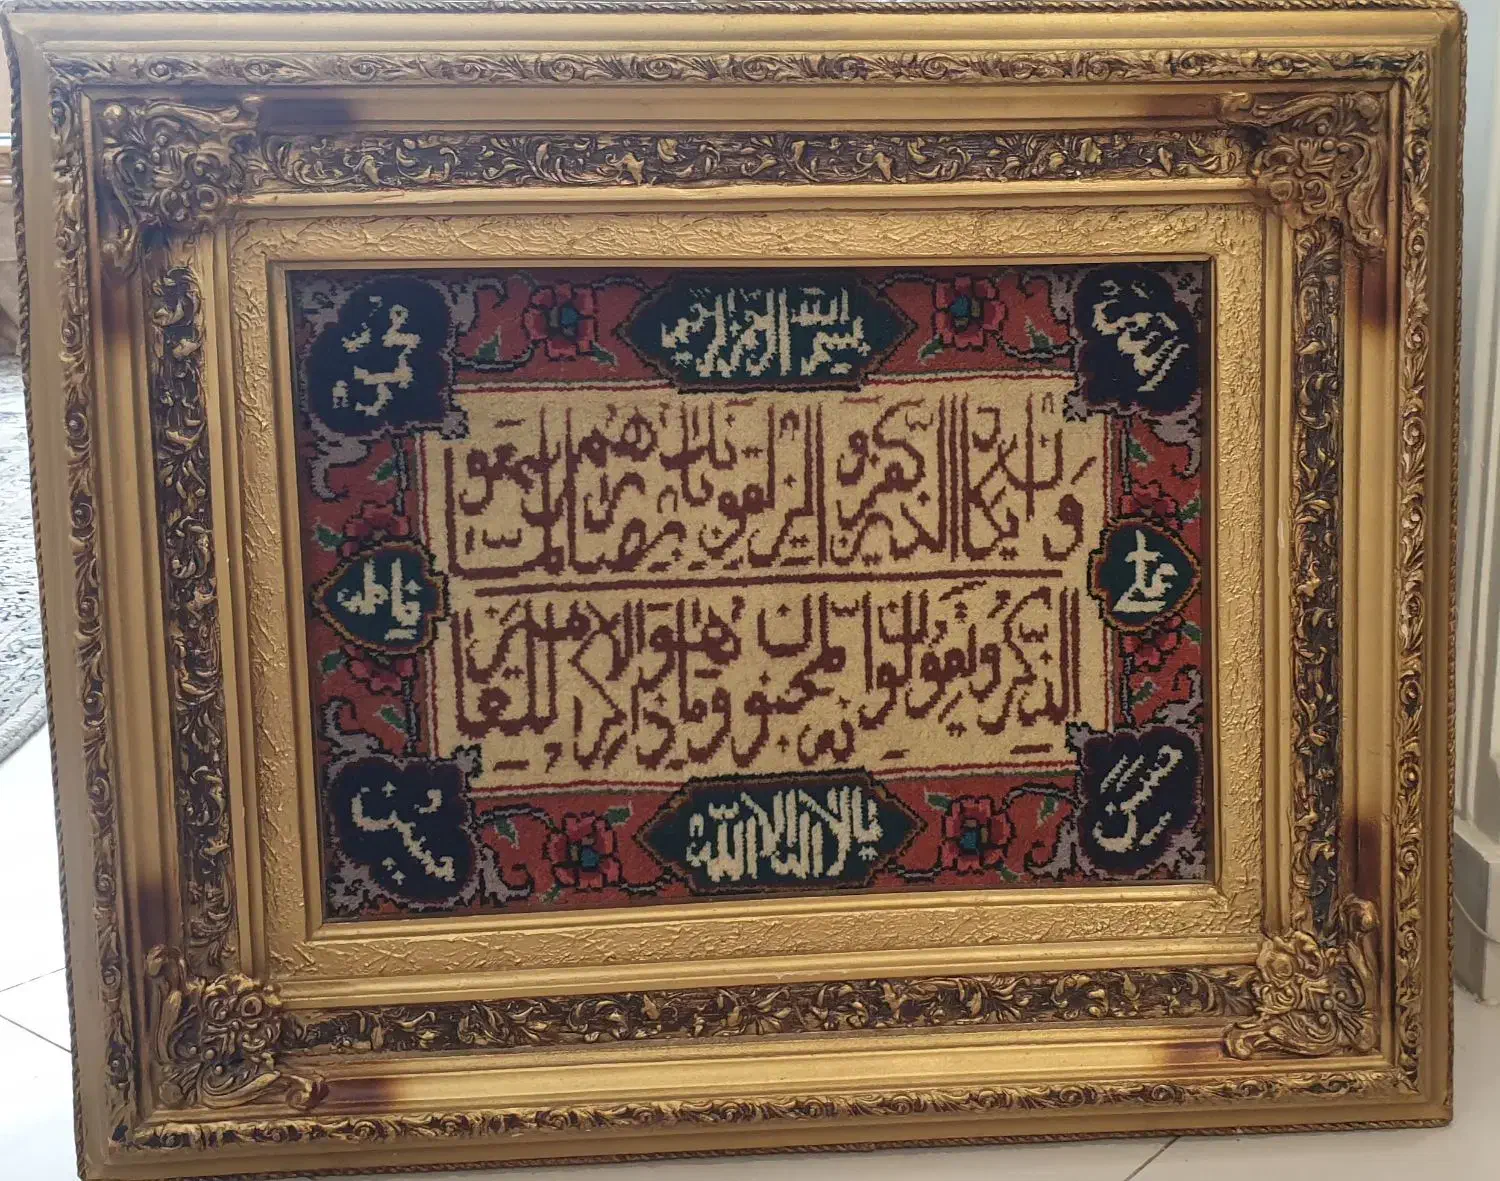 بسم الله الرحمن الرحیم
محمد
وان یکاد الذین کفروا لیزلقونک بابصارهم لما سمعوا
علی
فاطمه
الذکر ویقولون انه لمجنون وما هو الا ذکر للعالمین
حسن
لا اله الا الله
حسین